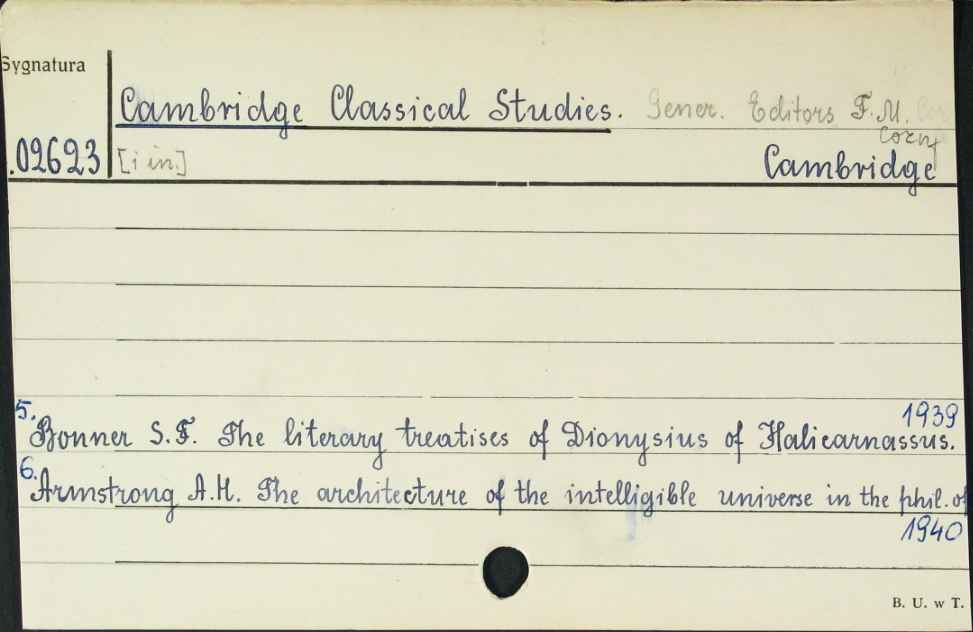 Sygnatura
Cambridge Classical Studies. Gener. Editors F. M.
Corn
.02623 [i in.] Cambridge
5. 1939
Bonner S. F. The literary treatises of Dionysius of Halicarnassus.
6.
Armstrong A. H. The architecture of the intelligible universe in the phil. of
1940
B. U. w T.